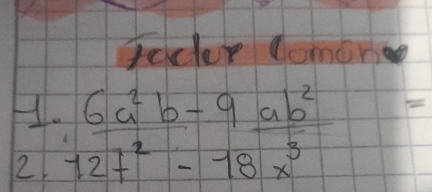 Factor Común
1. 6a²b - 9 ab² =
2. 12t² - 18x³